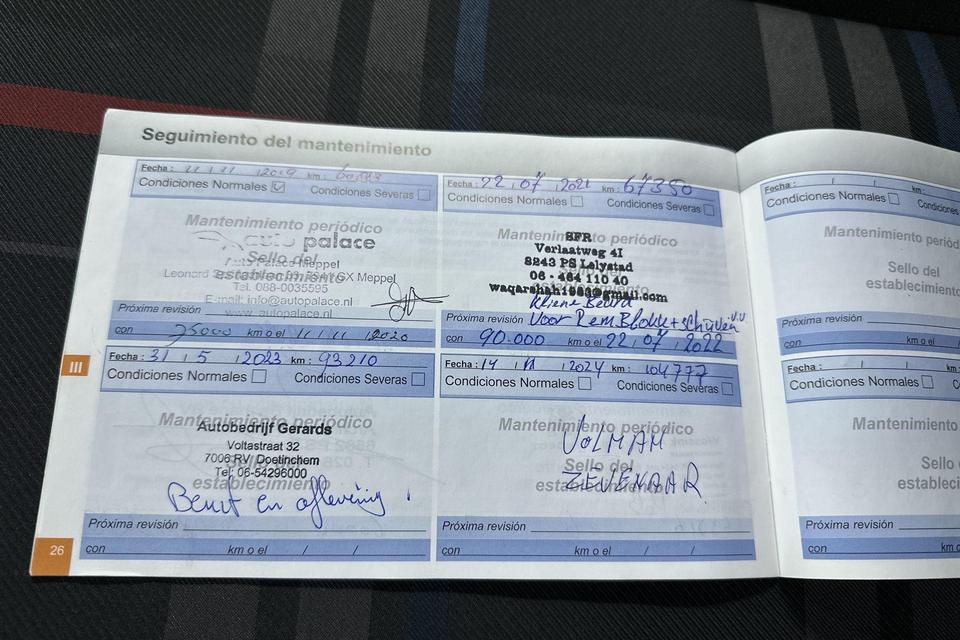 Seguimiento del mantenimiento
Fecha : 11 / 11 / 2019 km :
Condiciones Normales Condiciones Severas
Mantenimiento periódico
auto palace
Sello del
Auto Palace Meppel
establecimiento
GX Meppel
Tel. 088-0035595
E-mail: info@autopalace.nl
www.autopalace.nl
Próxima revisión
con 75000 km o el 11 / 11 / 2020
Fecha : 22 / 07 / 2021 km : 67350
Condiciones Normales Condiciones Severas
Mantenimiento periódico
SFR
Verlaatweg 41
8243 PS Lelystad
06 - 464 110 40
waqarshah1983@gmail.com
Kliene Beurd
Próxima revisión Voor RemBlokke+schijven v.v
con 90.000 km o el 22 / 07 / 2022
III
Fecha : 31 / 5 / 2023 km : 93210
Condiciones Normales Condiciones Severas
Mantenimiento periódico
Autobedrijf Gerards
Voltastraat 32
7006 RV Doetinchem
Tel: 06-54296000
Sello del
establecimiento
Beurt en aflevering
Próxima revisión
con km o el / /
Fecha : 14 / / 2024 km : 104777
Condiciones Normales Condiciones Severas
Mantenimiento periódico
VOLMAN
Sello del
establecimiento
ZEVENAAR
Próxima revisión
con km o el / /
26
Fecha : / / km :
Condiciones Normales Condiciones
Mantenimiento periód
Sello del
establecimien
Próxima revisión
con km o el /
Fecha : / / km
Condiciones Normales Condicione
Mantenimiento
Sello
estableci
Próxima revisión
con km o